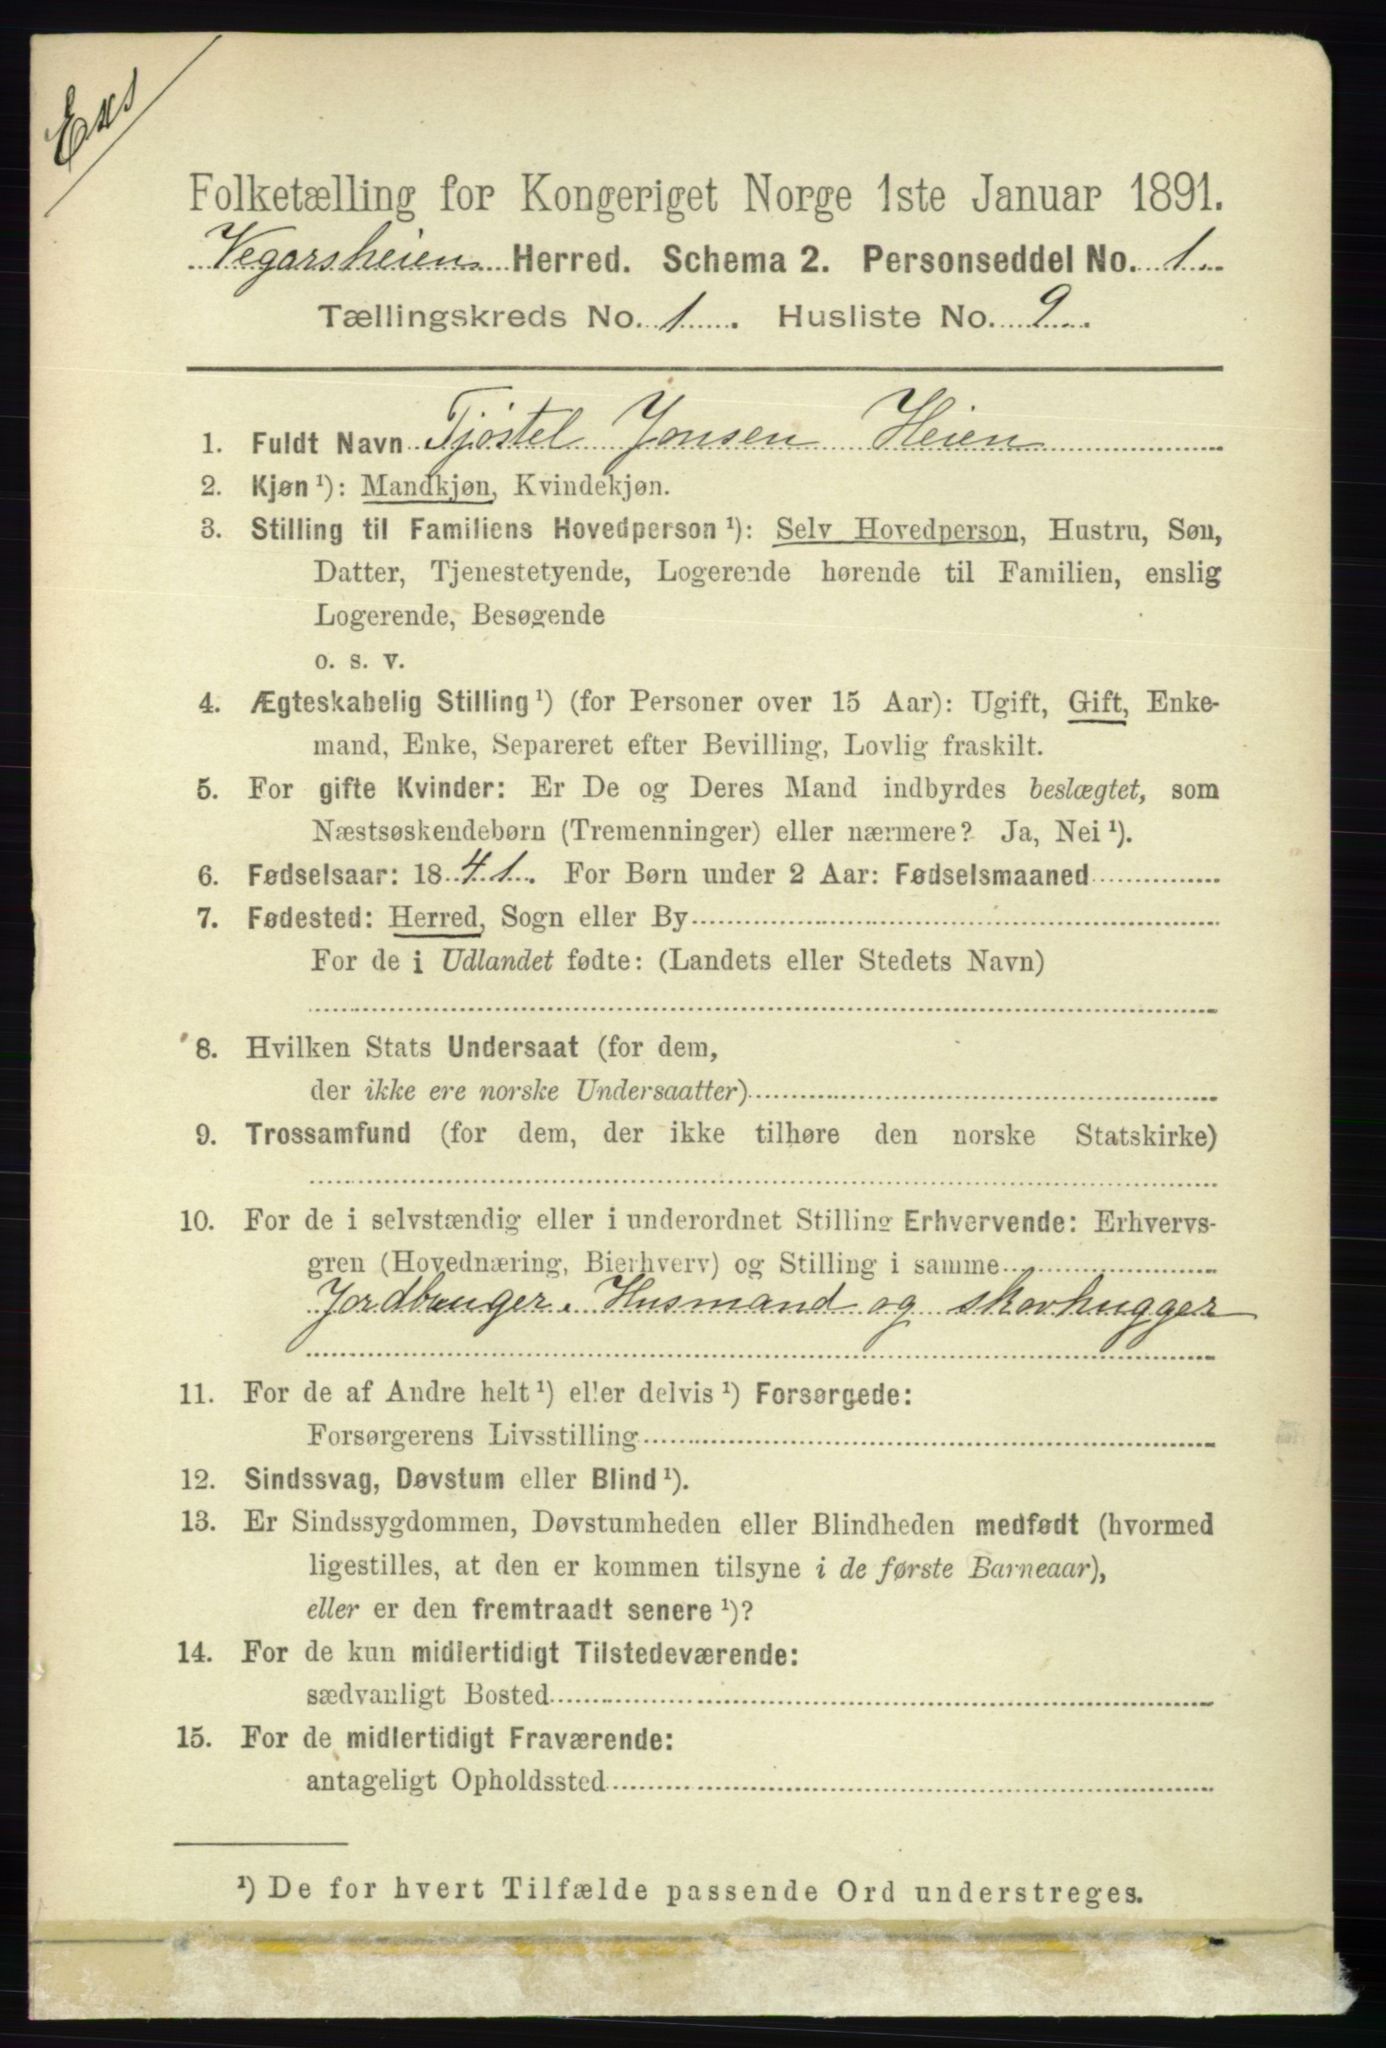 Exs
Folketælling for Kongeriget Norge 1ste Januar 1891.
Vegarsheien Herred. Schema 2. Personseddel No. 1
Tællingskreds No. 1. Husliste No. 9.
1. Fuldt Navn Tjøstel Jonsen Heien
2. Kjøn ¹): Mandkjøn, Kvindekjøn.
3. Stilling til Familiens Hovedperson ¹): Selv Hovedperson, Hustru, Søn,
Datter, Tjenestetyende, Logerende hørende til Familien, enslig
Logerende, Besøgende
o. s. v.
4. Ægteskabelig Stilling ¹) (for Personer over 15 Aar): Ugift, Gift, Enke-
mand, Enke, Separeret efter Bevilling, Lovlig fraskilt.
5. For gifte Kvinder: Er De og Deres Mand indbyrdes beslægtet, som
Næstsøskendebørn (Tremenninger) eller nærmere? Ja, Nei ¹).
6. Fødselsaar: 1841. For Børn under 2 Aar: Fødselsmaaned
7. Fødested: Herred, Sogn eller By
For de i Udlandet fødte: (Landets eller Stedets Navn)
8. Hvilken Stats Undersaat (for dem,
der ikke ere norske Undersaatter)
9. Trossamfund (for dem, der ikke tilhøre den norske Statskirke)
10. For de i selvstændig eller i underordnet Stilling Erhvervende: Erhvervs-
gren (Hovednæring, Bierhverv) og Stilling i samme
Jordbruger. Husmand og skovhugger
11. For de af Andre helt ¹) eller delvis ¹) Forsørgede:
Forsørgerens Livsstilling
12. Sindssvag, Døvstum eller Blind ¹).
13. Er Sindssygdommen, Døvstumheden eller Blindheden medfødt (hvormed
ligestilles, at den er kommen tilsyne i de første Barneaar),
eller er den fremtraadt senere ¹)?
14. For de kun midlertidigt Tilstedeværende:
sædvanligt Bosted
15. For de midlertidigt Fraværende:
antageligt Opholdssted
¹) De for hvert Tilfælde passende Ord understreges.